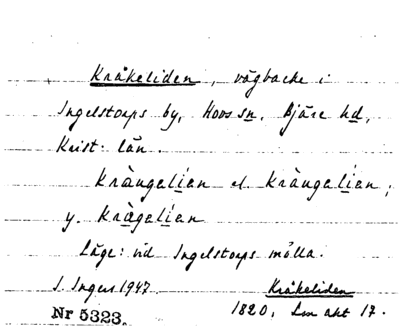 Kråkeliden, vägbacke i
Ingelstorps by, Hovs sn, Bjäre hd,
Krist: län.
krångalian el. kràngalian;
y. kràgalian
Läge: vid Ingelstorps mölla.
S. Ingers 1947.
Kråkeliden
1820, Lm akt 17.
Nr 5323.